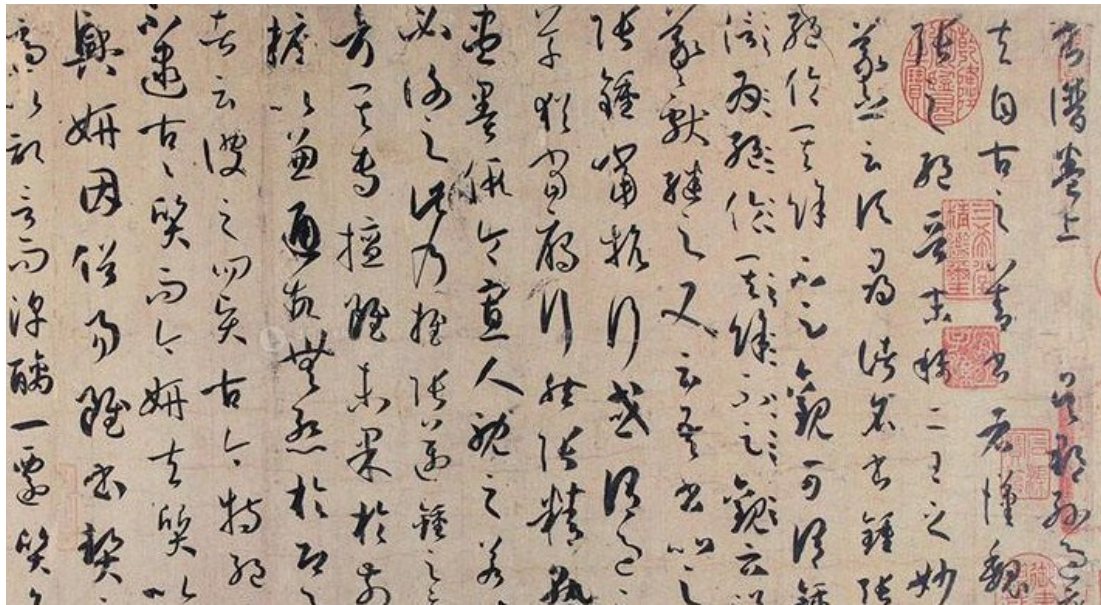 書譜卷上 吳郡孫過庭
夫自古之善書者漢魏
張之絕晉末稱二王之妙
羲之云頃尋諸名書鍾張
絕倫其餘不足觀可謂鍾
信為絕倫其餘不足觀云沒
羲獻繼之又云吾書比之
張鍾當抗行或謂過之
草猶當鴈行然張精熟
盡墨假令寡人耽之若
必謝之此乃推張邁鍾之
考其專擅雖未果於前
摭以兼通故無慚於即
者云彼之四賢古今特絕
不逮古古質而今妍夫質以
興妍因俗易雖書契之
適以記言而淳醨一遷質文